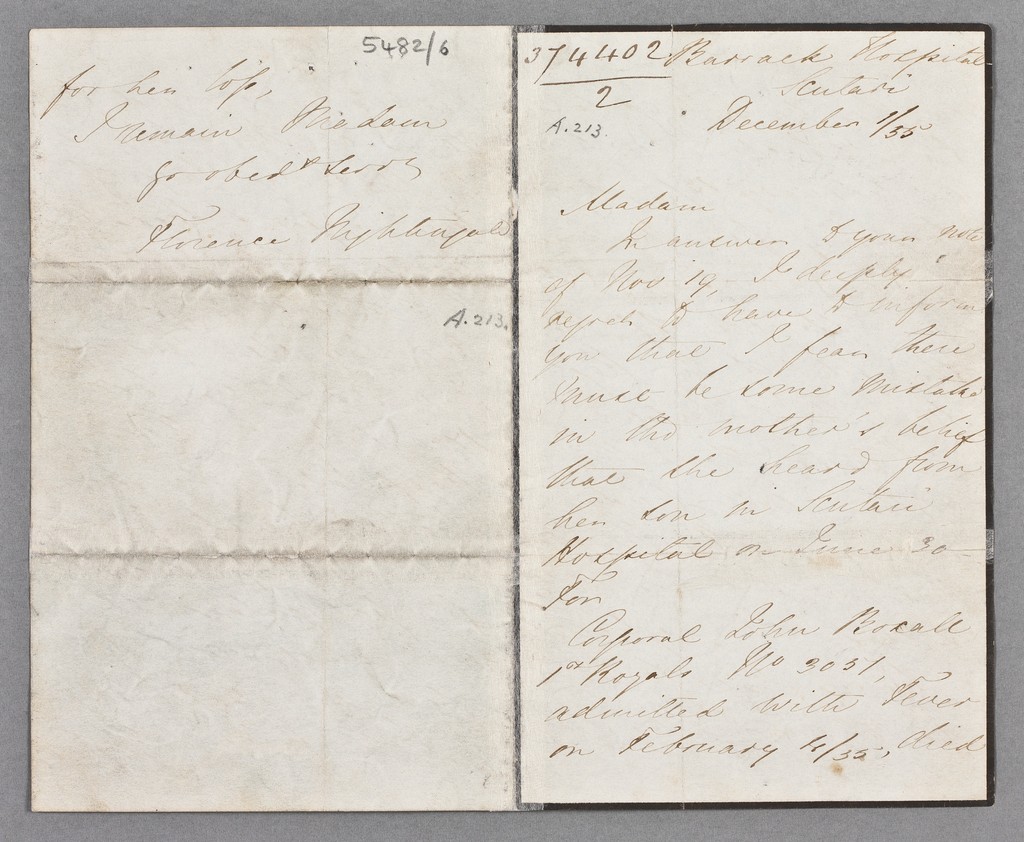 5482/6
for her loss,
I remain Madam
yr obedt servt
Florence Nightingale
A.213.
374402
2
A.213.
Barrack Hospital
Scutari
December 1/55
Madam
In answer to your note
of Nov 19, I deeply
regret to have to inform
you that I fear there
must be some mistake
in the mother's belief
that she heard from
her son in Scutari
Hospital on June 30—
For
Corporal John Boxall
1st Royals No 3051,
admitted with Fever
on February 4/55, died